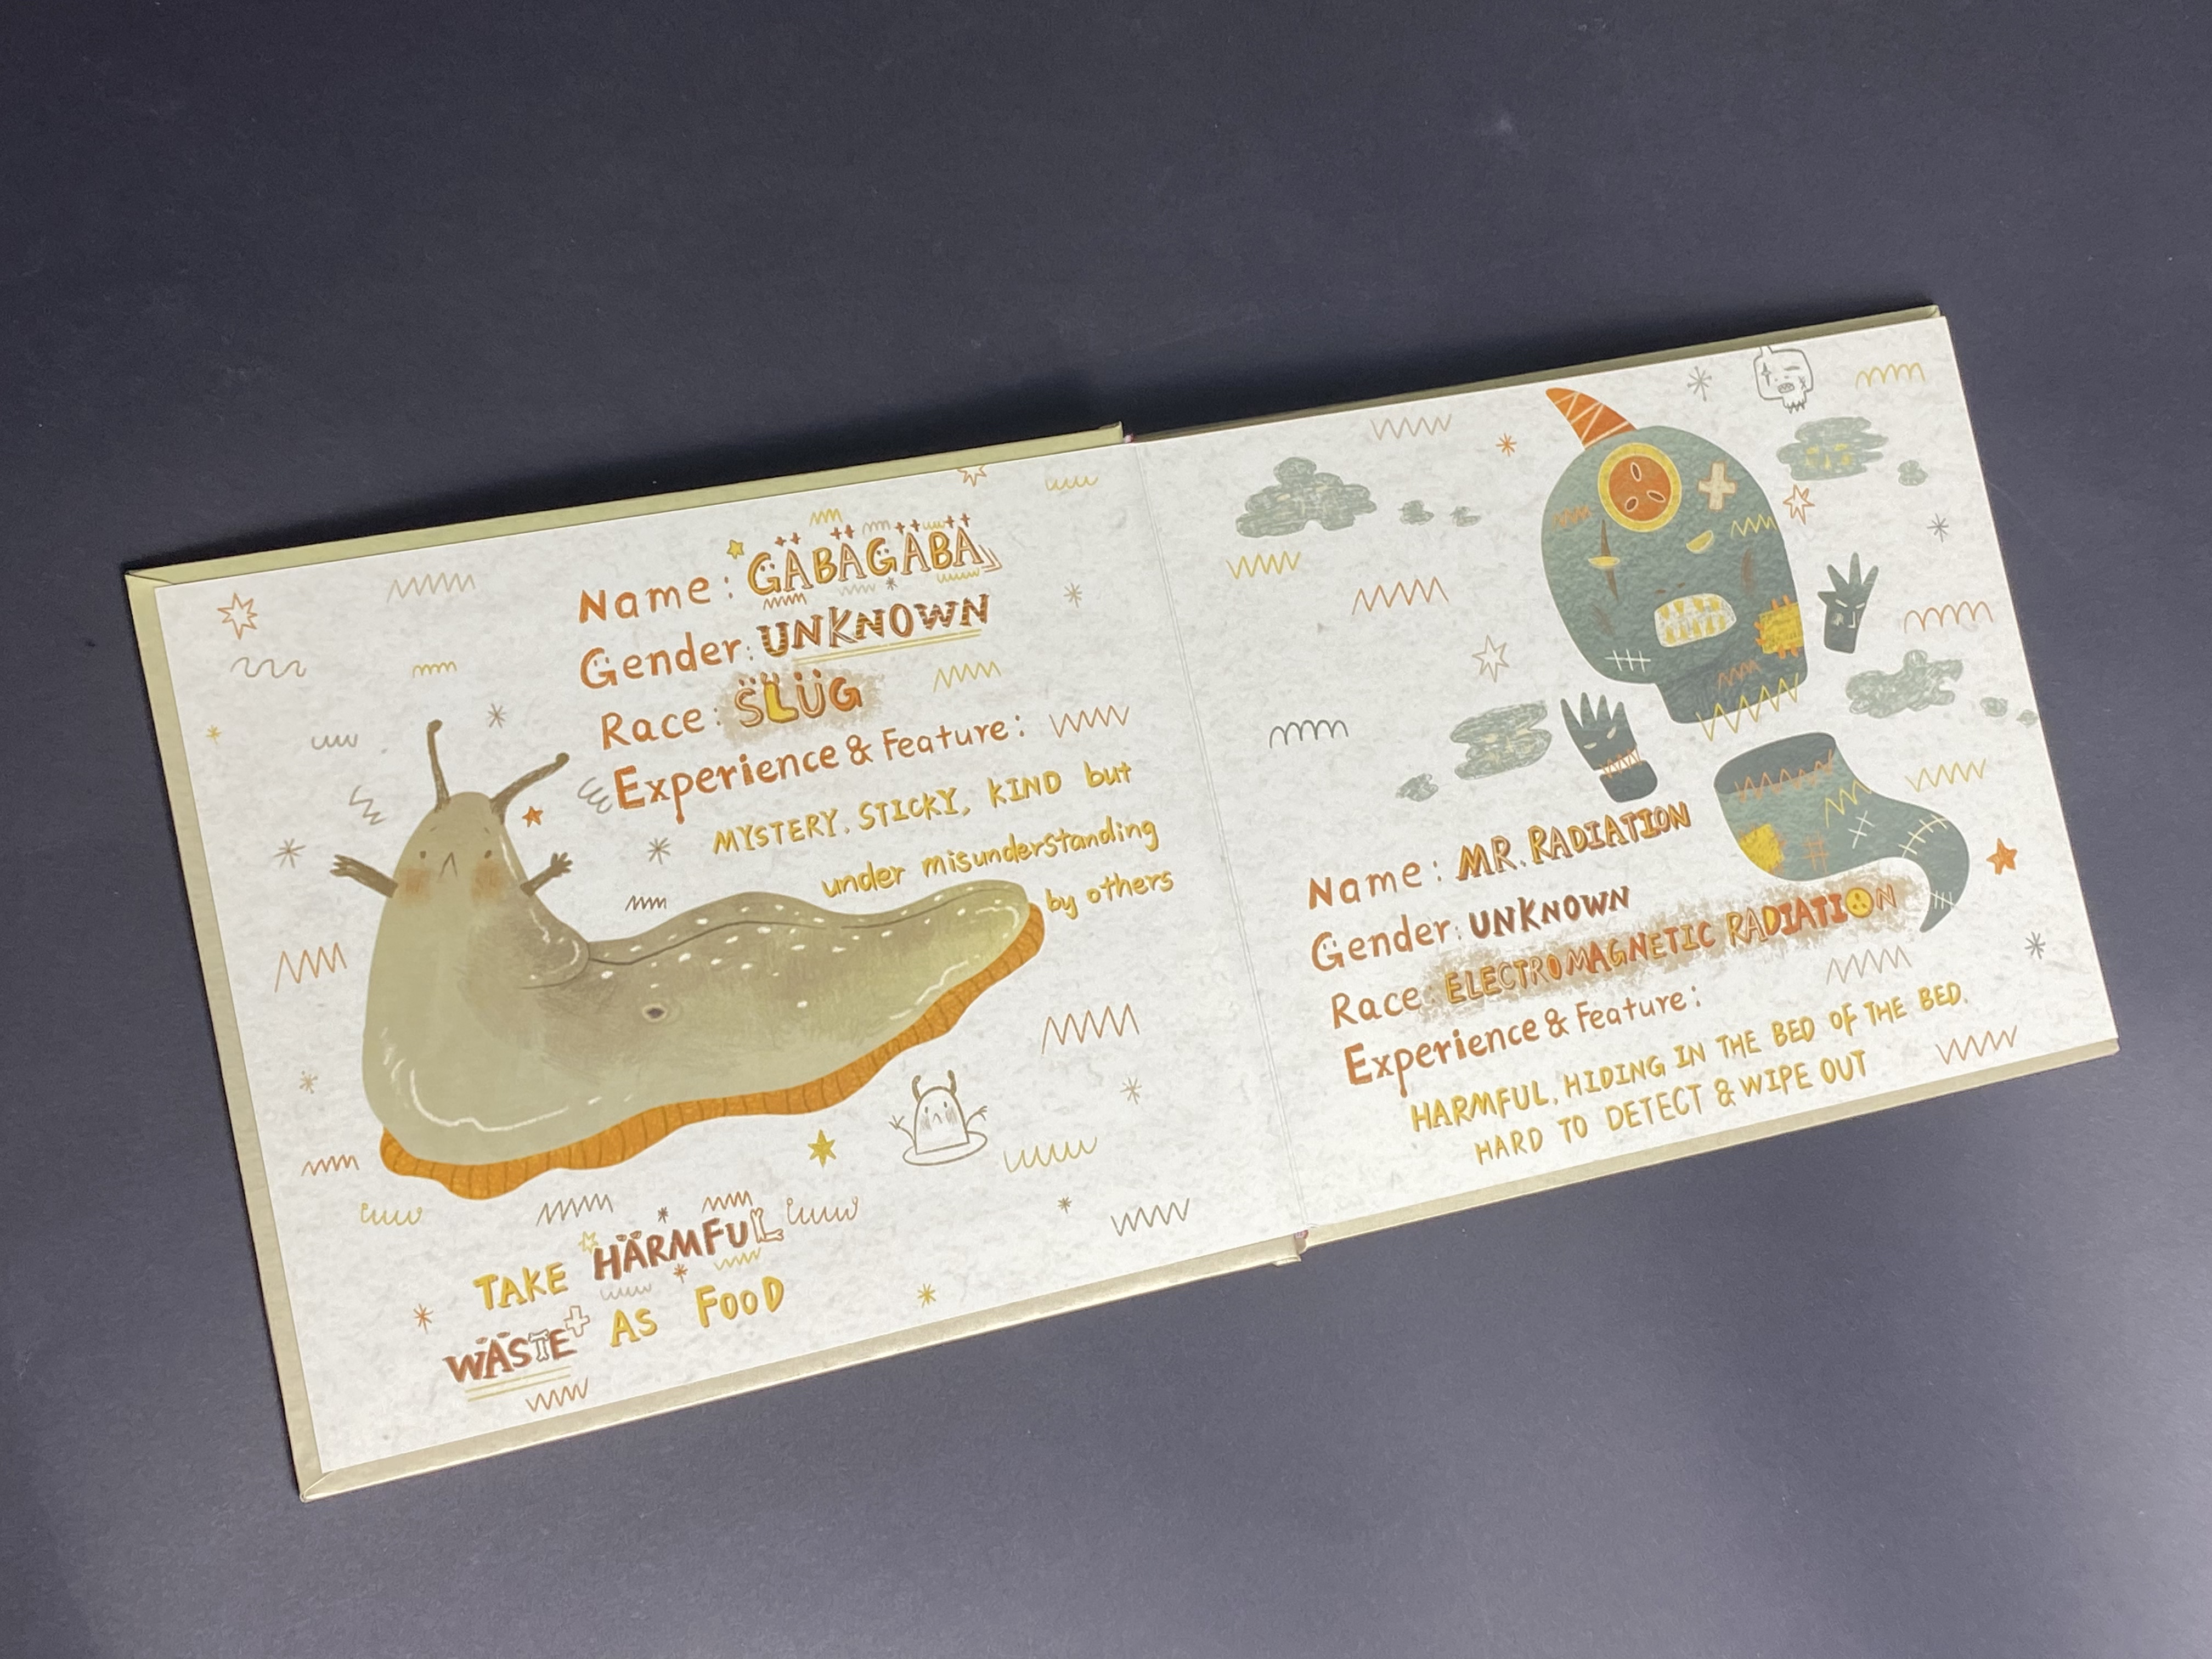 Name: GÄBÄGÄBÄ
Gender: UNKNOWN
Race: SLÜG
Experience & Feature:
MYSTERY, STICKY, KIND but
under misunderstanding
by others
TAKE HÄRMFUL
WÄSTE AS FOOD
Name: MR. RADIATION
Gender: UNKNOWN
Race: ELECTROMAGNETIC RADIATION
Experience & Feature:
HARMFUL, HIDING IN THE BED OF THE BED.
HARD TO DETECT & WIPE OUT